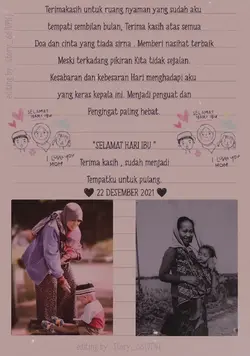 Terimakasih untuk ruang nyaman yang sudah aku
tempati sembilan bulan, Terima kasih atas semua
Doa dan cinta yang tiada sirna . Memberi nasihat terbaik
Meski terkadang pikiran Kita tidak sejalan.
Kesabaran dan kebesaran Hari menghadapi aku
yang keras kepala ini. Menjadi penguat dan
Pengingat paling hebat.
SELAMAT
HARI IBU
SELAMAT
HARI IBU
I LOVE YOU
MOM
I LOVE YOU
MOM
"SELAMAT HARI IBU "
Terima kasih , sudah menjadi
Tempatku untuk pulang.
🖤 22 DESEMBER 2021 🖤